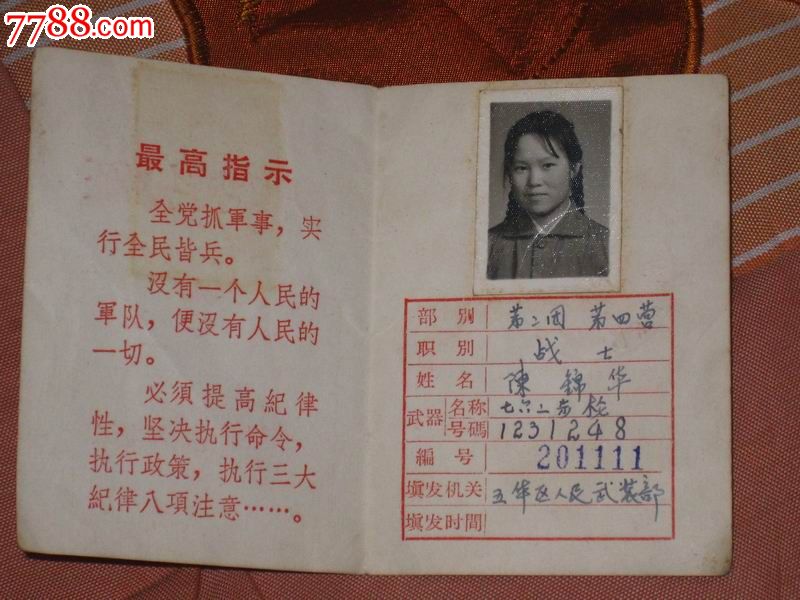 7788.com
最高指示
全党抓軍事，实
行全民皆兵。
沒有一个人民的
軍队，便沒有人民的
一切。
必须提高紀律
性，坚决执行命令，
执行政策，执行三大
紀律八項注意……。
部 别 第二团 第四营
职 别 战士
姓 名 陳錦华
武器 名称 七六二步枪
号碼 1231248
編 号 201111
填发机关 五华区人民武装部
填发时間